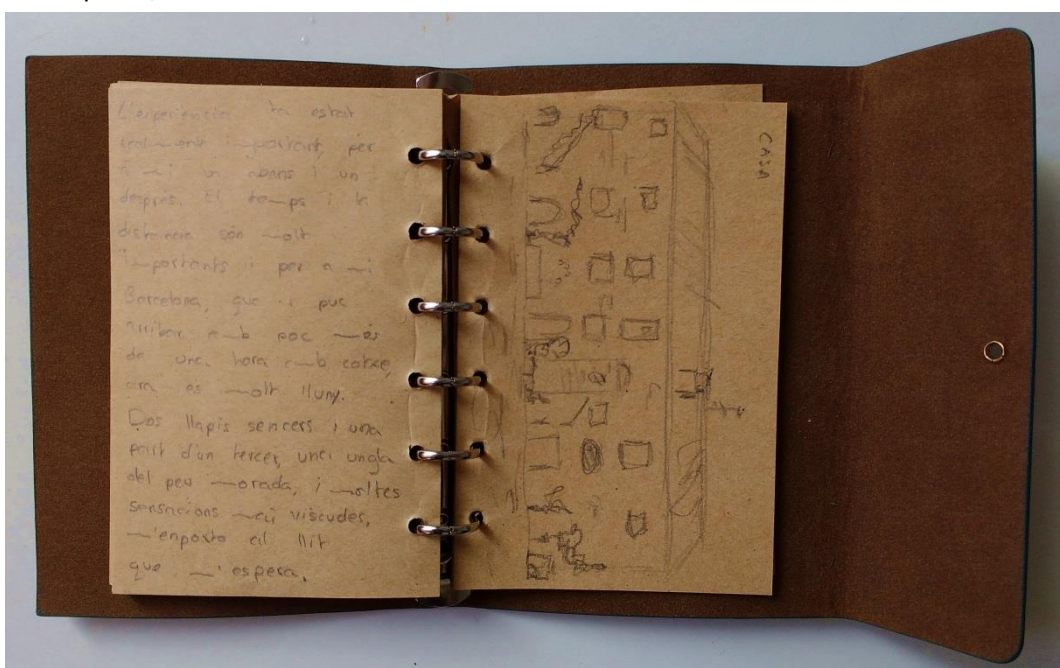 L'experiencia ha estat
realment important, per
a mi, un abans i un
després. El temps i la
distancia són molt
importants i per a mi
Barcelona, que i puc
arribar amb poc més
de una hora amb cotxe,
ara es molt lluny.
Dos llapis sencers i una
part d'un tercer, una ungla
del peu morada, i moltes
sensacions mai viscudes,
m'enporto al llit
que m'espera.
CASA